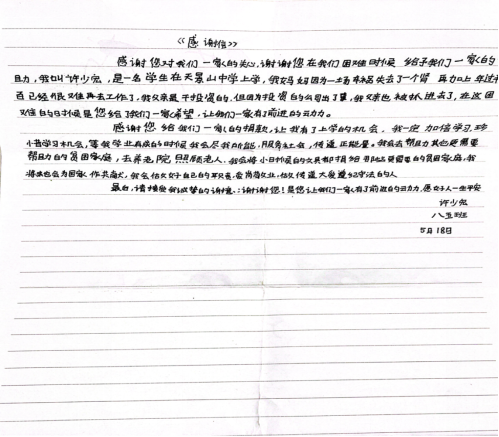 《感谢信》
感谢您对我们一家的关心,谢谢您在我们困难时候 给予我们一家的
助力,我叫许少宏,是一名 学生在天景山中学上学,我妈妈因为一场 失去了一个肾 再加上年过半
百已经很难再去工作了,我父亲是干投资的,但因为投资的公司出了事,我父亲也被抓进去了,在这困
难的时候是您给了我们一家希望,让我们一家有前进的动力。
感谢您给我们一家的捐款,让我有了上学的机会,我一定 加倍学习,珍
惜学习机会,等我学业有成的时候我会尽我所能,服务社会,传递正能量。我会去帮助其他更需要
帮助的贫困家庭,去养老院照顾老人,我会将小时候的文具都捐给那些更需要的贫困家庭,我
将来也会为国家作共献,我会做好自己的职责,爱岗敬业,做传递大爱遵纪守法的人
最后,请接受我诚挚的谢意:谢谢您!是您让我们一家有了前进的动力,愿好人一生平安
许少宏
八五班
5月18日